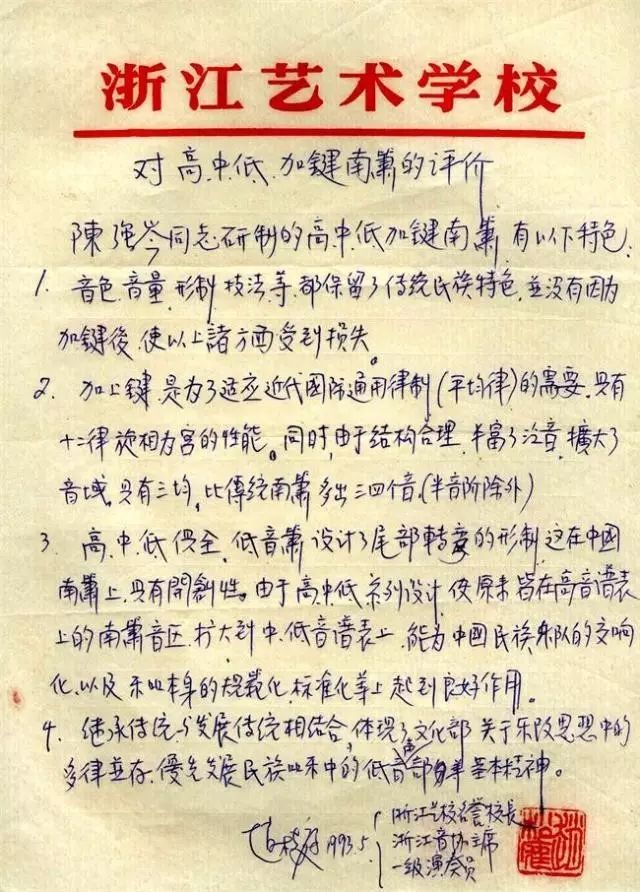 浙江艺术学校
对高、中、低、加键南箫的评价
陳强岑同志研制的高中低加键南箫,有以下特色:
1. 音色、音量、形制、技法等,都保留了传统民族特色,並没有因为
加键後,使以上諸方面受到损失。
2. 加上键,是为了适应近代國际通用律制(平均律)的需要,具有
十二律旋相为宫的性能。同时,由于结构合理,丰富了泛音,擴大了
音域,具有三均,比傳统南箫多出三四倍。(半音阶除外)
3. 高、中、低俱全,低音箫设计了尾部转弯的形制,这在中國
南箫上,具有開創性。由于高中低系列设计,使原来皆在高音谱表
上的南箫音区,扩大到中、低音谱表上,能为中國民族乐队的交响
化,以及乐器本身的规范化、标准化等上起到良好作用。
4. 继承传统与发展传统相结合,体现了文化部关于乐改思想中的
多律並存,優先发展民族吹乐中的低音声部等基本精神。
1993.5.
浙江艺校名誉校長
浙江音协主席
一级演奏员